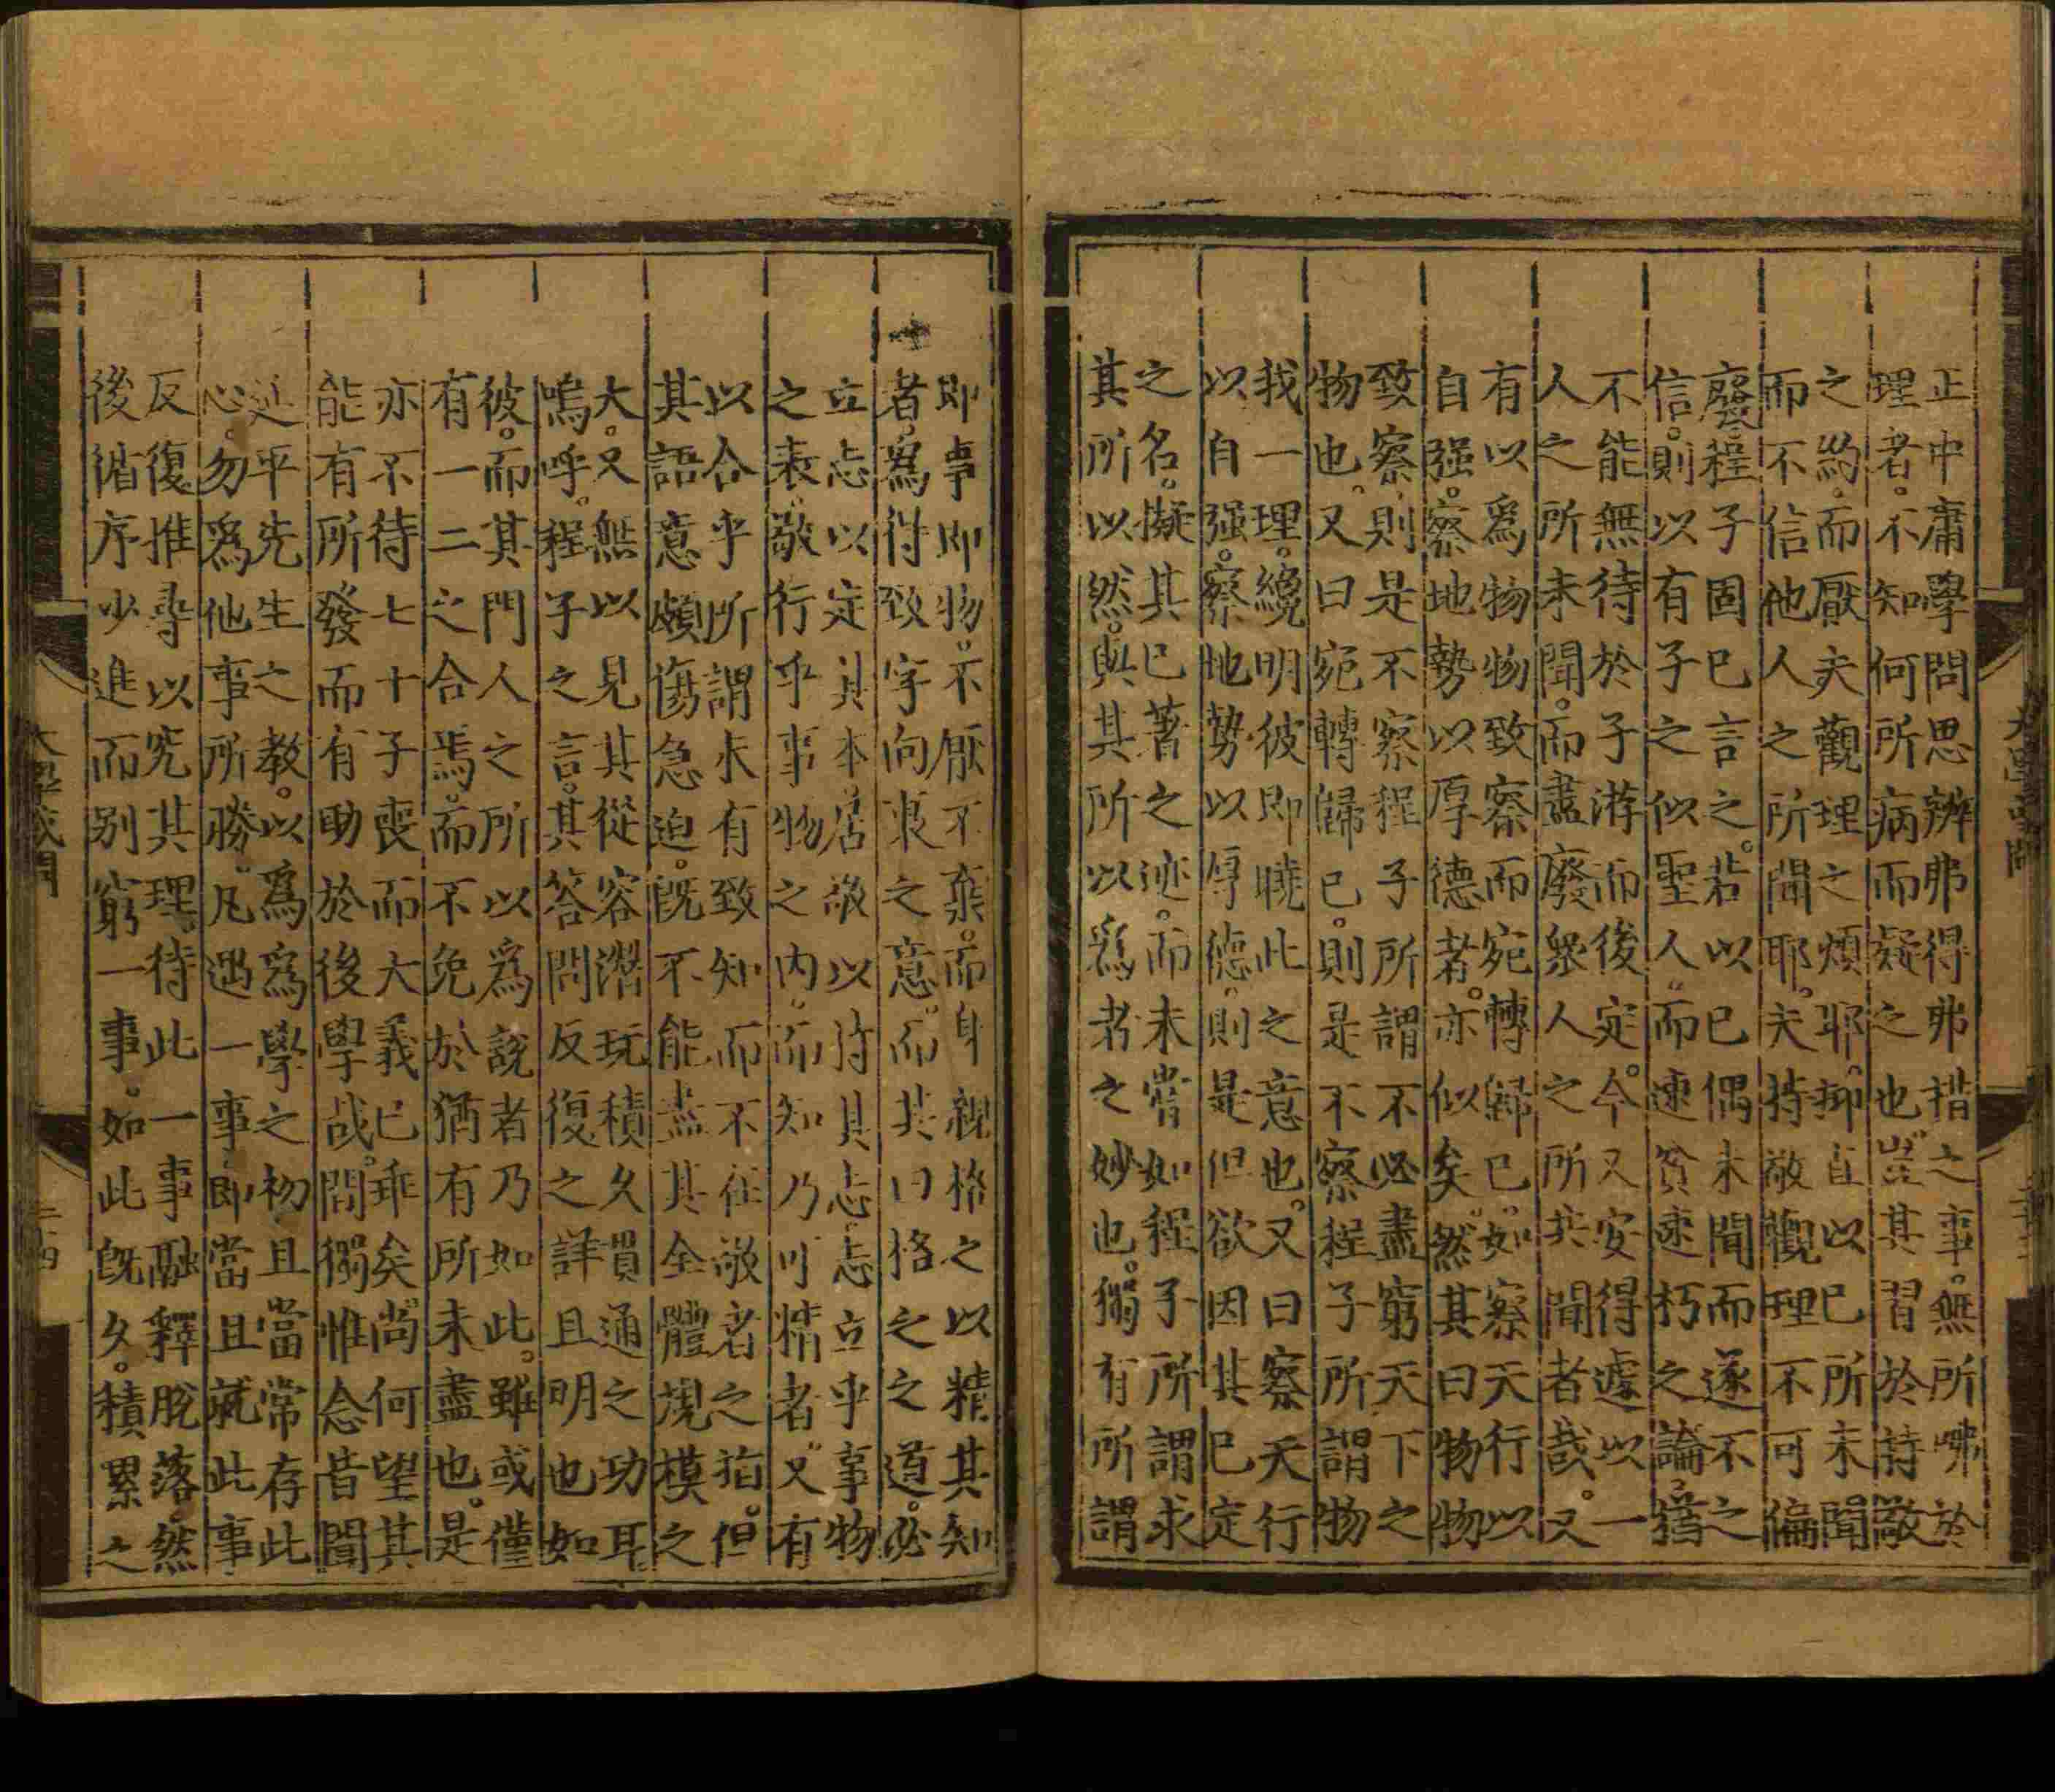 正中庸學問思辨弗得弗措之事。無所咈於
理者。不知何所病而疑之也。豈其習於持敬
之約。而厭夫觀理之煩耶。抑直以已所未聞
而不信他人之所聞耶。夫持敬觀理不可偏
廢。程子固已言之。若以已偶未聞而遂不之
信。則以有子之似聖人。而速貧速朽之論。猶
不能無待於子游而後定。今又安得遽以一
人之所未聞。而盡廢衆人之所共聞者哉。又
有以爲物物致察而宛轉歸已。如察天行以
自强。察地勢以厚德者。亦似矣。然其曰物物
致察則是不察程子所謂不必盡窮天下之
物也。又曰宛轉歸已。則是不察程子所謂物
我一理。纔明彼即曉此之意也。又曰察天行
以自强。察地勢以厚德。則是但欲因其已定
之名。擬其已著之迹。而未嘗如程子所謂求
其所以然。與其所以爲者之妙也。獨有所謂
即事即物。不厭不棄。而身親格之以精其知
者。爲得致字向裏之意。而其曰格之之道。必
立志以定其本。居敬以持其志。志立乎事物
之表。敬行乎事物之内。而知乃可精者。又有
以合乎所謂未有致知而不在敬者之指。但
其語意頗傷急迫。旣不能盡其全體䂓模之
大。又無以見其從容潛玩積久貫通之功耳
嗚呼。程子之言。其答問反復之詳且明也如
彼。而其門人之所以爲說者乃如此。雖或僅
有一二之合焉。而不免於猶有所未盡也。是
亦不待七十子喪而大義已乖矣。尚何望其
能有所發而有助於後學哉。間獨惟念昔聞
延平先生之教。以爲爲學之初且當常存此
心。勿爲他事所勝。凡遇一事即當且就此事
反復推尋以究其理。待此一事融釋脫落。然
後循序少進而别窮一事。如此旣久。積累之